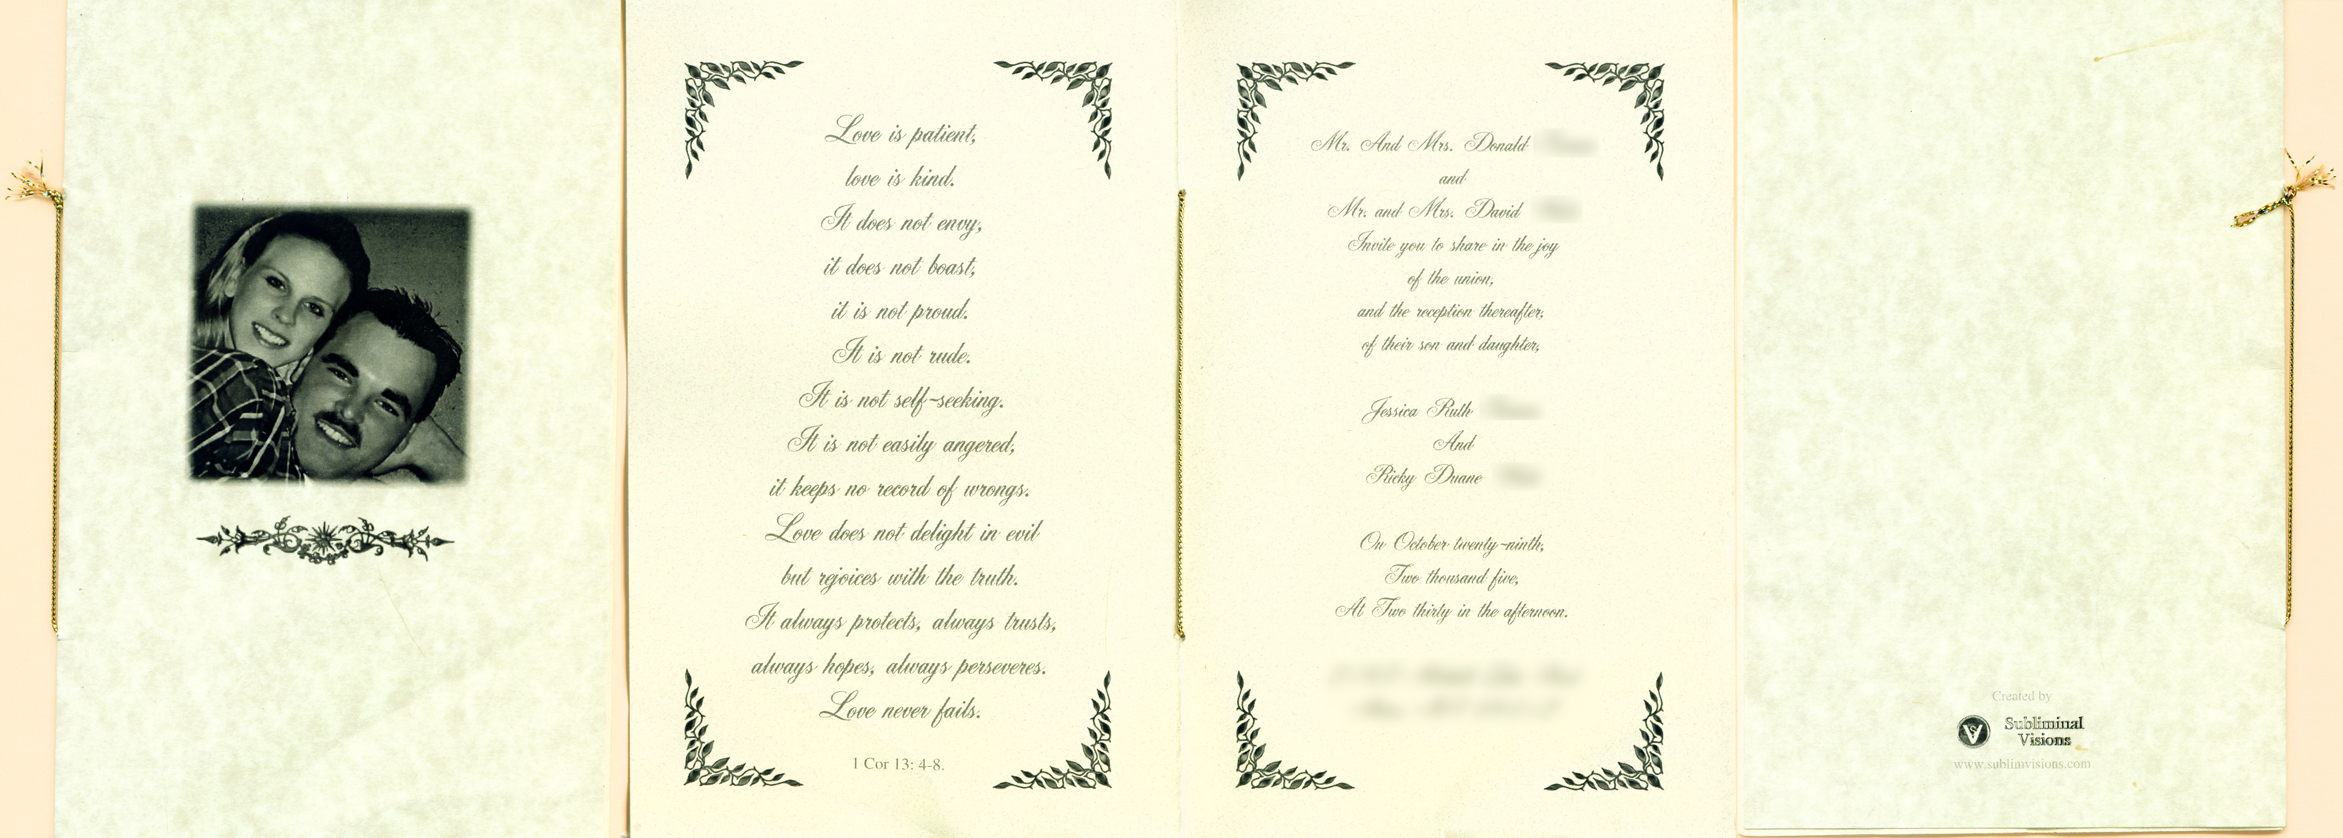 Love is patient,
love is kind.
It does not envy,
it does not boast,
it is not proud.
It is not rude.
It is not self-seeking.
It is not easily angered,
it keeps no record of wrongs.
Love does not delight in evil
but rejoices with the truth.
It always protects, always trusts,
always hopes, always perseveres.
Love never fails.
1 Cor 13: 4-8.
Mr. And Mrs. Donald
and
Mr. and Mrs. David
Invite you to share in the joy
of the union,
and the reception thereafter,
of their son and daughter,
Jessica Ruth
And
Ricky Duane
On October twenty-ninth,
Two thousand five,
At Two thirty in the afternoon.
Created by
Subliminal
Visions
www.sublimvisions.com